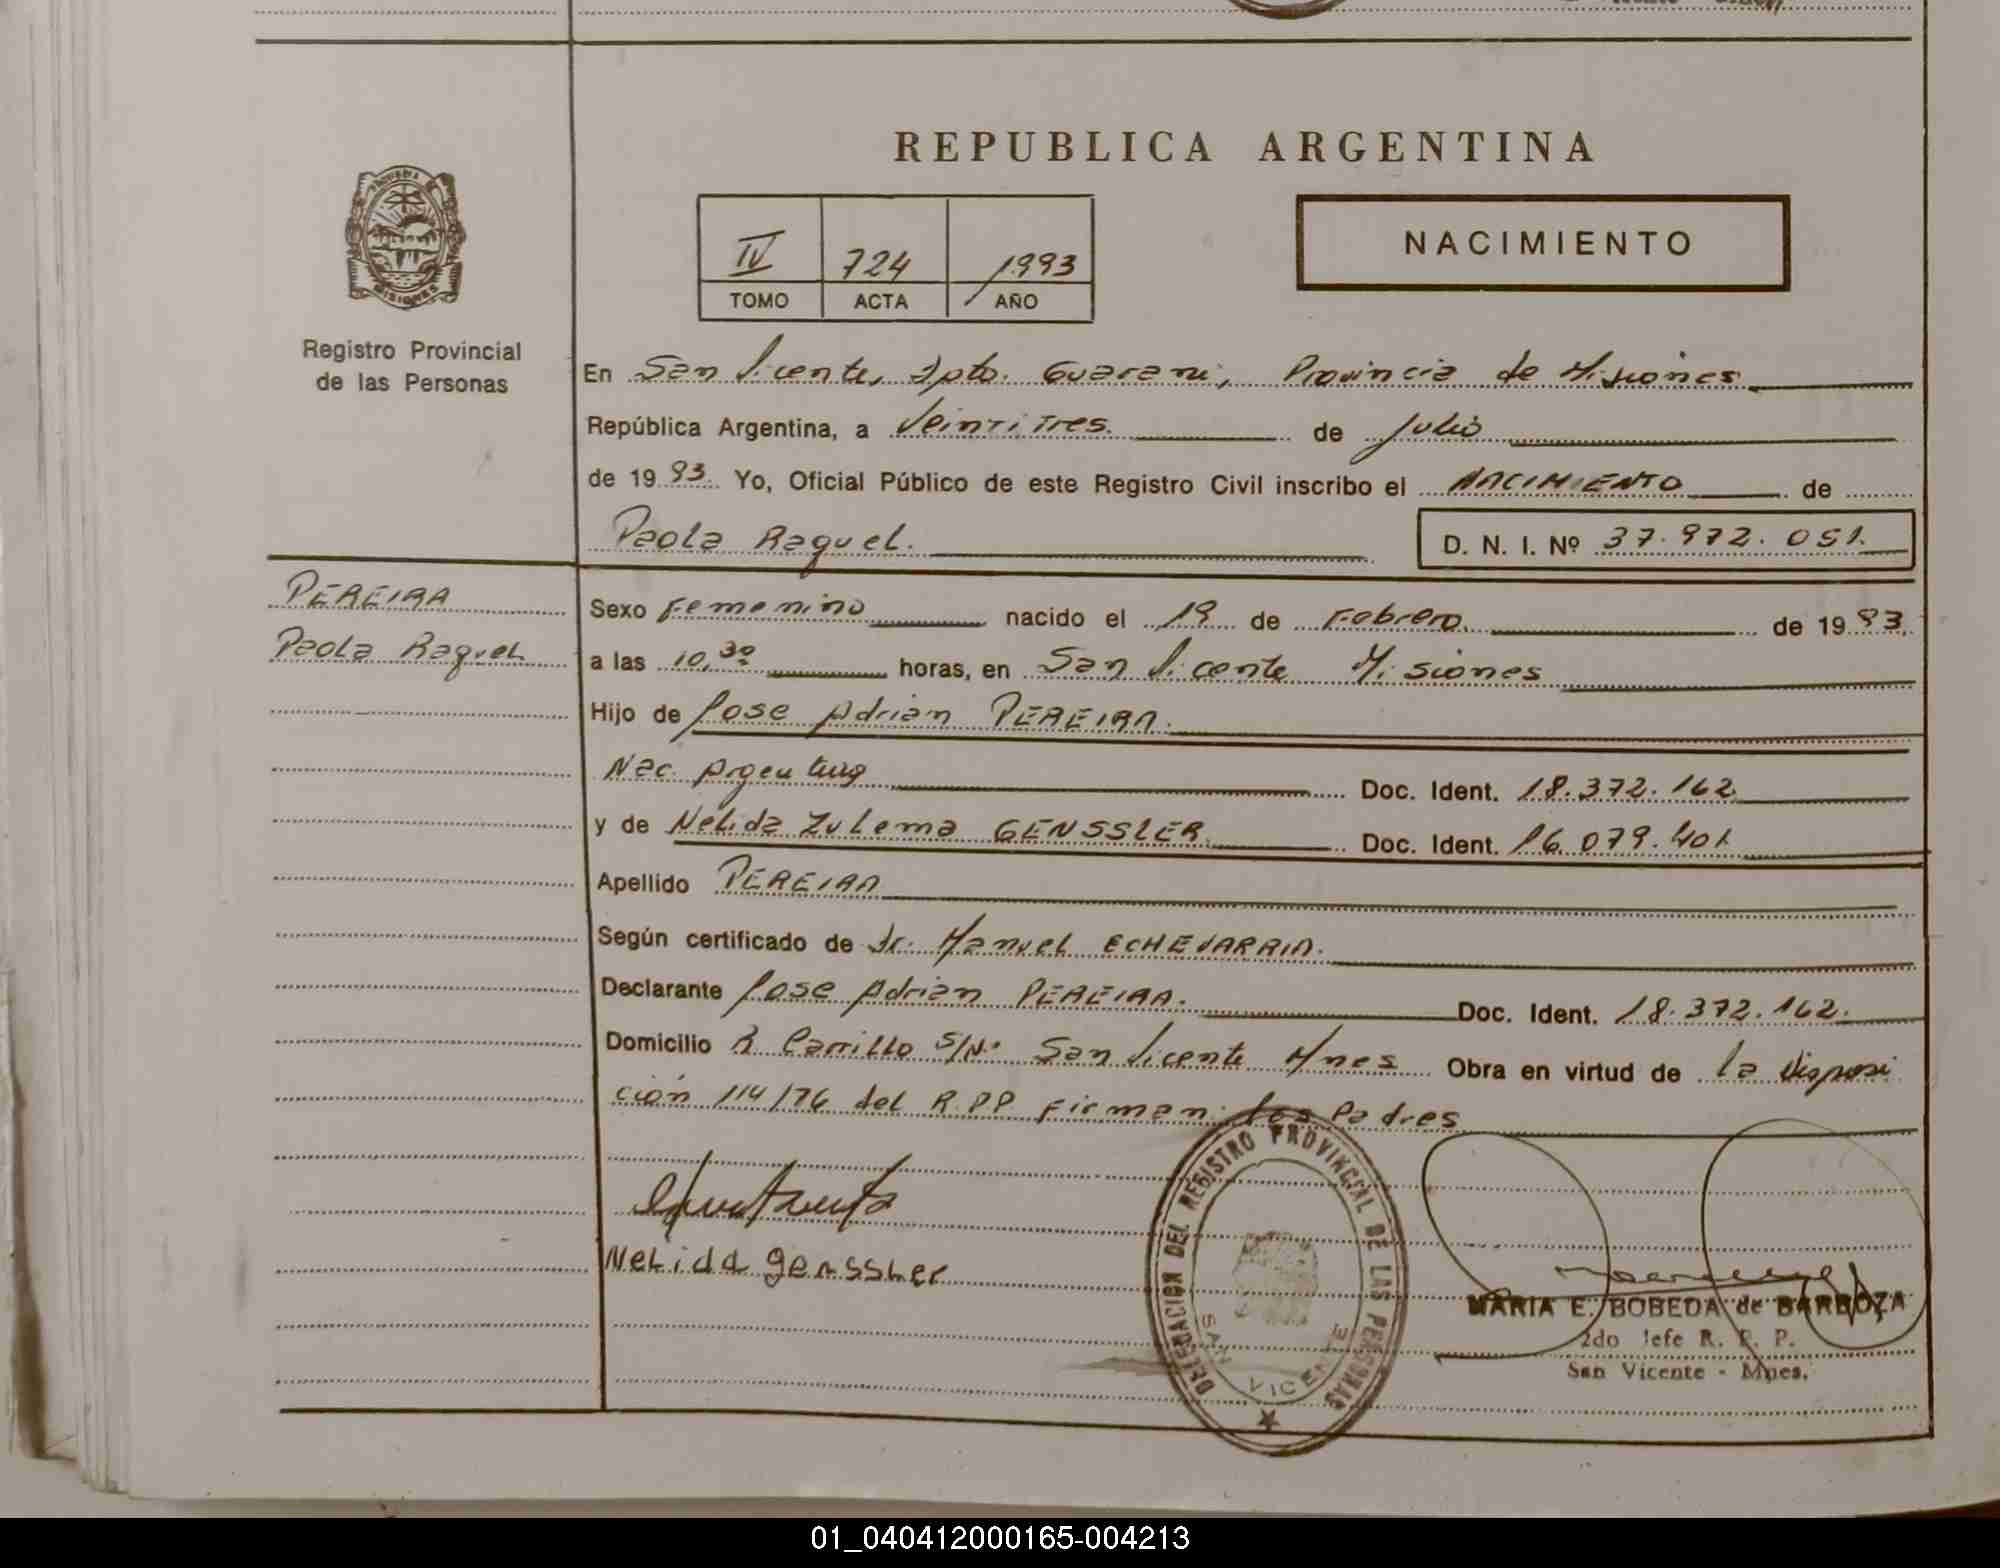 REPUBLICA ARGENTINA
IV 724 1993
TOMO ACTA AÑO
NACIMIENTO
MISIONES
Registro Provincial
de las Personas
En San Vicente, Dpto. Guarani, Provincia de Misiones
República Argentina, a Veintitres. de Julio
de 1993. Yo, Oficial Público de este Registro Civil inscribo el NACIMIENTO de
Paola Raquel.
D. N. I. Nº 37.972.051.
PEREIRA
Paola Raquel
Sexo Femenino nacido el 19 de Febrero. de 1993.
a las 10,30 horas, en San Vicente Misiones
Hijo de Jose Adrian PEREIRA.
Nac. Argentina Doc. Ident. 18.372.162
y de Nelida Zulema GENSSLER Doc. Ident. 16.079.401
Apellido PEREIRA
Según certificado de Dr. Manuel ECHEVARRIA.
Declarante Jose Adrian PEREIRA. Doc. Ident. 18.372.162.
Domicilio R Carrillo S/Nº San Vicente Mnes Obra en virtud de la Disposi
ción 114/76 del R.P.P. Firman: los Padres
Nelida Genssler
DELEGACION DEL REGISTRO PROVINCIAL DE LAS PERSONAS
SAN VICENTE
MARIA E. BOBEDA de BARBOZA
2do Jefe R. P. P.
San Vicente - Mnes.
01_040412000165-004213